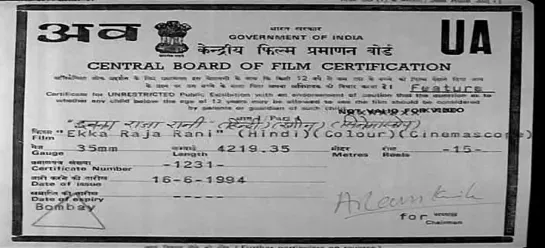 अव
भारत सरकार
GOVERNMENT OF INDIA
केन्द्रीय फिल्म प्रमाणन बोर्ड
UA
CENTRAL BOARD OF FILM CERTIFICATION
Feature
Certificate for UNRESTRICTED Public Exhibition with an endorsement of caution that the question as to
whether any child below the age of 12 years may be allowed to see the film should be considered
by parents or guardian of such child
NOT VALID FOR VIDEO
इक्का राजा रानी (हिन्दी) (रंगीन) (सिनेमास्कोप)
Film "Ekka Raja Rani" (Hindi)(Colour)(Cinemascope)
Gauge 35mm Length 4219.35 मीटर Metres रील Reels -15-
Certificate Number -1231-
जारी करने की तारीख
Date of issue 16-6-1994
समाप्ति की तारीख
Date of expiry -----
Bombay
for अध्यक्ष
Chairman